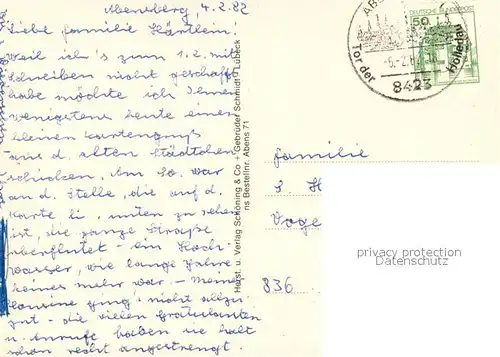 Abensberg, 4.2.82
Liebe Familie Härtlein!
Weil ich's zum 1.2. mit
Schreiben nicht geschafft
habe möchte ich Ihnen
wenigstens heute einen
kleinen Kartengruß
aus d. alten Städtchen
schicken. Am So. war
an d. Stelle, die auf d.
Karte li. unten zu sehen
ist, die ganze Straße
überflutet - ein Hoch-
wasser, wie lange Jahre
keines mehr war. - Meiner
Cousine ging's nicht allzu
gut - die vielen Gratulanten
u. Anrufe haben sie halt
schon recht angestrengt.
Horst. u. Verlag Schöning & Co + Gebrüder Schmidt · Lübeck
ns Bestellnr. Abens 71
DEUTSCHE BUNDESPOST
50
Tor der Hollertau
8423
Familie
S. H
Voge
836
privacy protection
Datenschutz